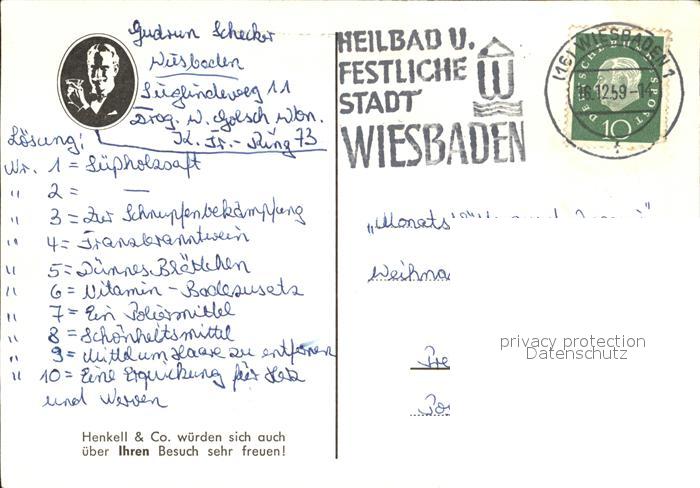 Gudrun Schecker
Wiesbaden
Sieglindeweg 11
Drog. W. Golsch Wbn.
K. Fr.-Ring 73
Lösung:
Nr. 1 = Süßholzsaft
" 2 = —
" 3 = Zur Schnupfenbekämpfung
" 4 = Franzbranntwein
" 5 = Dünnes Blättchen
" 6 = Vitamin-Badezusatz
" 7 = Ein Poliermittel
" 8 = Schönheitsmittel
" 9 = Mittel um Haare zu entfernen
" 10 = Eine Erquickung für Herz
und Nerven
Henkell & Co. würden sich auch
über Ihren Besuch sehr freuen!
HEILBAD U.
FESTLICHE
STADT
WIESBADEN
W
(16) WIESBADEN 1
16.12.59-14
DEUTSCHE BUNDESPOST
10
„Monats
Weihna
Pre
Pos
privacy protection
Datenschutz